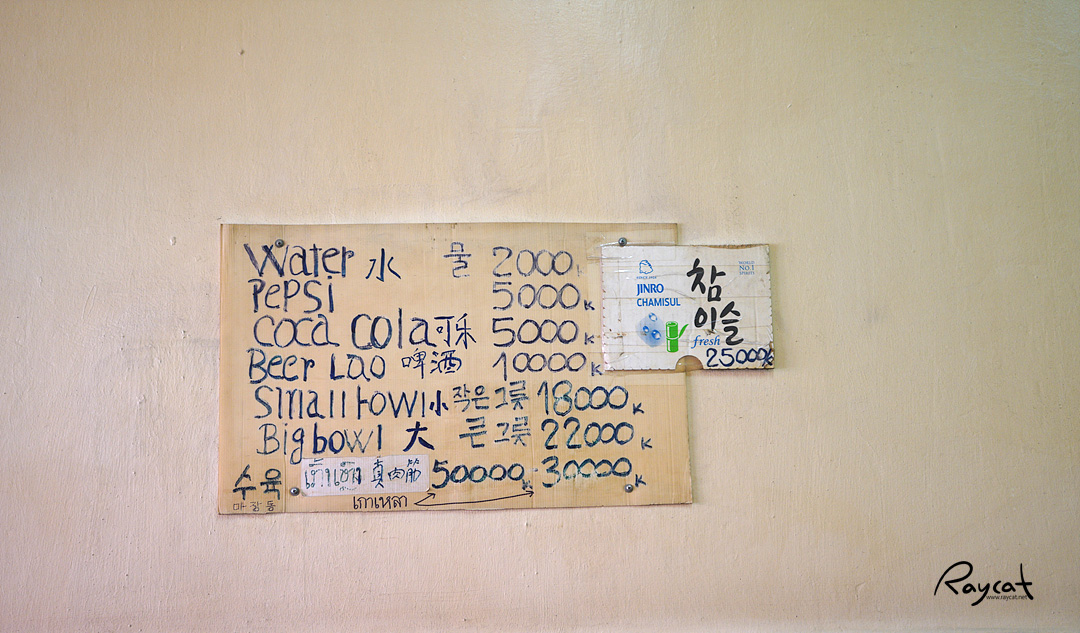 Water 水 물 2000K
Pepsi 5000K
coca cola 可乐 5000K
Beer Lao 啤酒 10000K
Small bowl 小 작은 그릇 18000K
Big bowl 大 큰 그릇 22000K
수육 真肉筋 50000K 30000K
마장동
เกาเหลา
SINCE 1924
JINRO
CHAMISUL
참이슬
fresh
WORLD
No.1
SPIRITS
25000K
Raycat
www.raycat.net